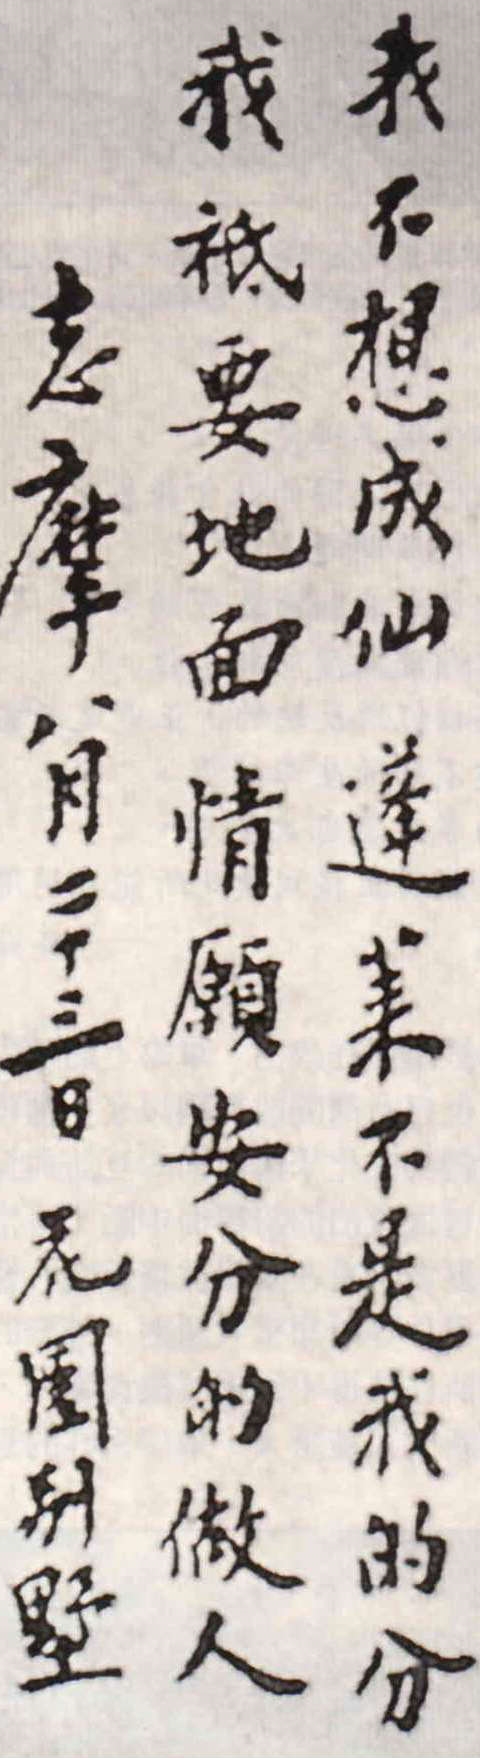 我不想成仙 蓬莱不是我的分
我祗要地面 情願安分的做人
志摩 八月二十三日 花園别墅